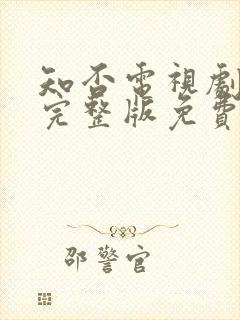 知否電視劇
完整版免費
邵警官